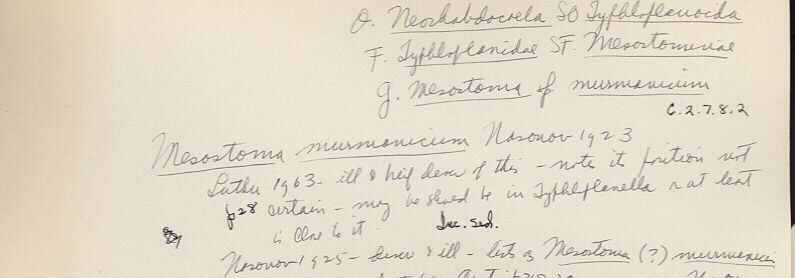 O. Neorhabdocoela SO Typhloplanoida
F. Typhloplanidae SF. Mesostominae
G. Mesostoma sp murmanicum
6.2.7.8.2
Mesostoma murmanicum Nasonov 1923
Luther 1963 - ill & brief descr of this - notes its position not
p28 certain - may be should be in Typhloplanella or at least
is close to it Inc. sed.
Nasonov 1925 - descr & ill - lists as Mesostoma (?) murmanicu